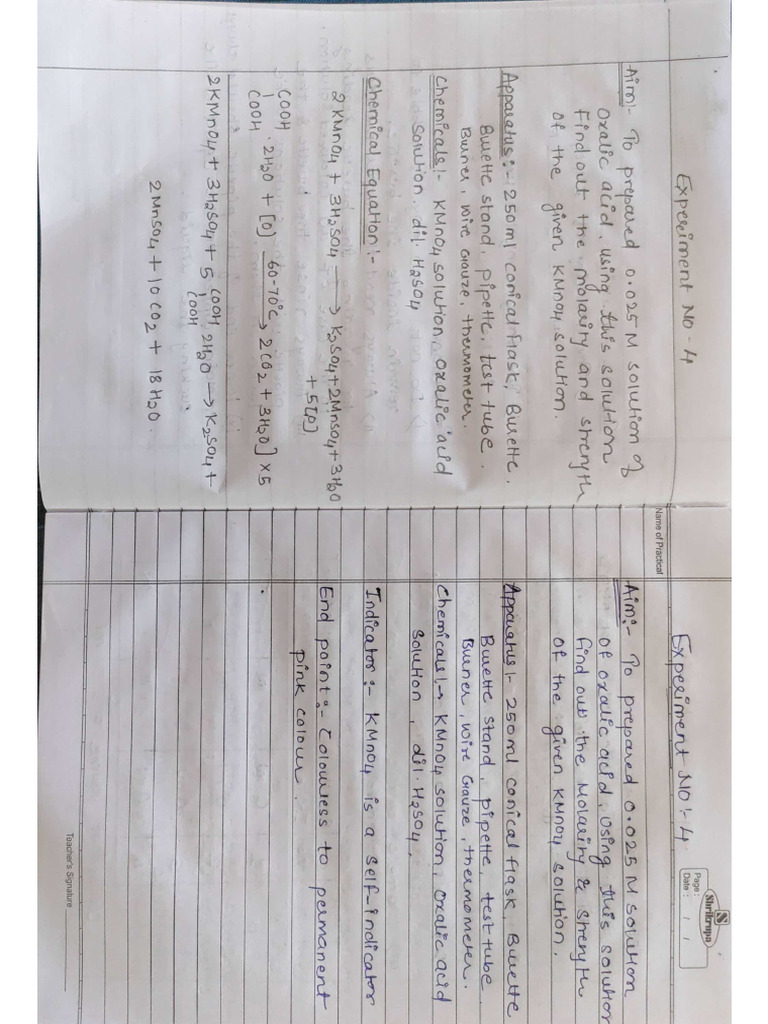 Experiment No - 4
Aim:- To prepared 0.025 M solution of
Oxalic acid, using this solution
Find out the molarity and strength
of the given KMnO4 solution.
Apparatus:- 250ml conical flask, Burette,
Burette stand, pipette, test tube,
Burner, Wire Gauze, thermometer.
Chemicals:- KMnO4 solution, Oxalic acid
Solution, dil. H2SO4
Chemical Equation:-
2KMnO4 + 3H2SO4 → K2SO4 + 2MnSO4 + 3H2O
+ 5[O]
COOH
| . 2H2O + [O] 60-70°C → 2CO2 + 3H2O] x 5
COOH
2KMnO4 + 3H2SO4 + 5 COOH
| 2H2O → K2SO4 +
COOH
2MnSO4 + 10CO2 + 18H2O.
Shrikrupa
Page :
Date : / /
Experiment No:- 4
Name of Practical
Aim:- To prepared 0.025 M solution
of oxalic acid, Using this solution
find out the Molarity & strength
of the given KMnO4 solution.
Apparatus:- 250ml conical flask, Burette
Burette stand, pipette, test tube,
Burner, Wire Gauze, thermometer.
Chemicals:- KMnO4 solution, Oxalic acid
Solution, dil. H2SO4,
Indicator:- KMnO4 is a self-indicator
End point:- Colourless to permanent
pink colour.
Teacher's Signature